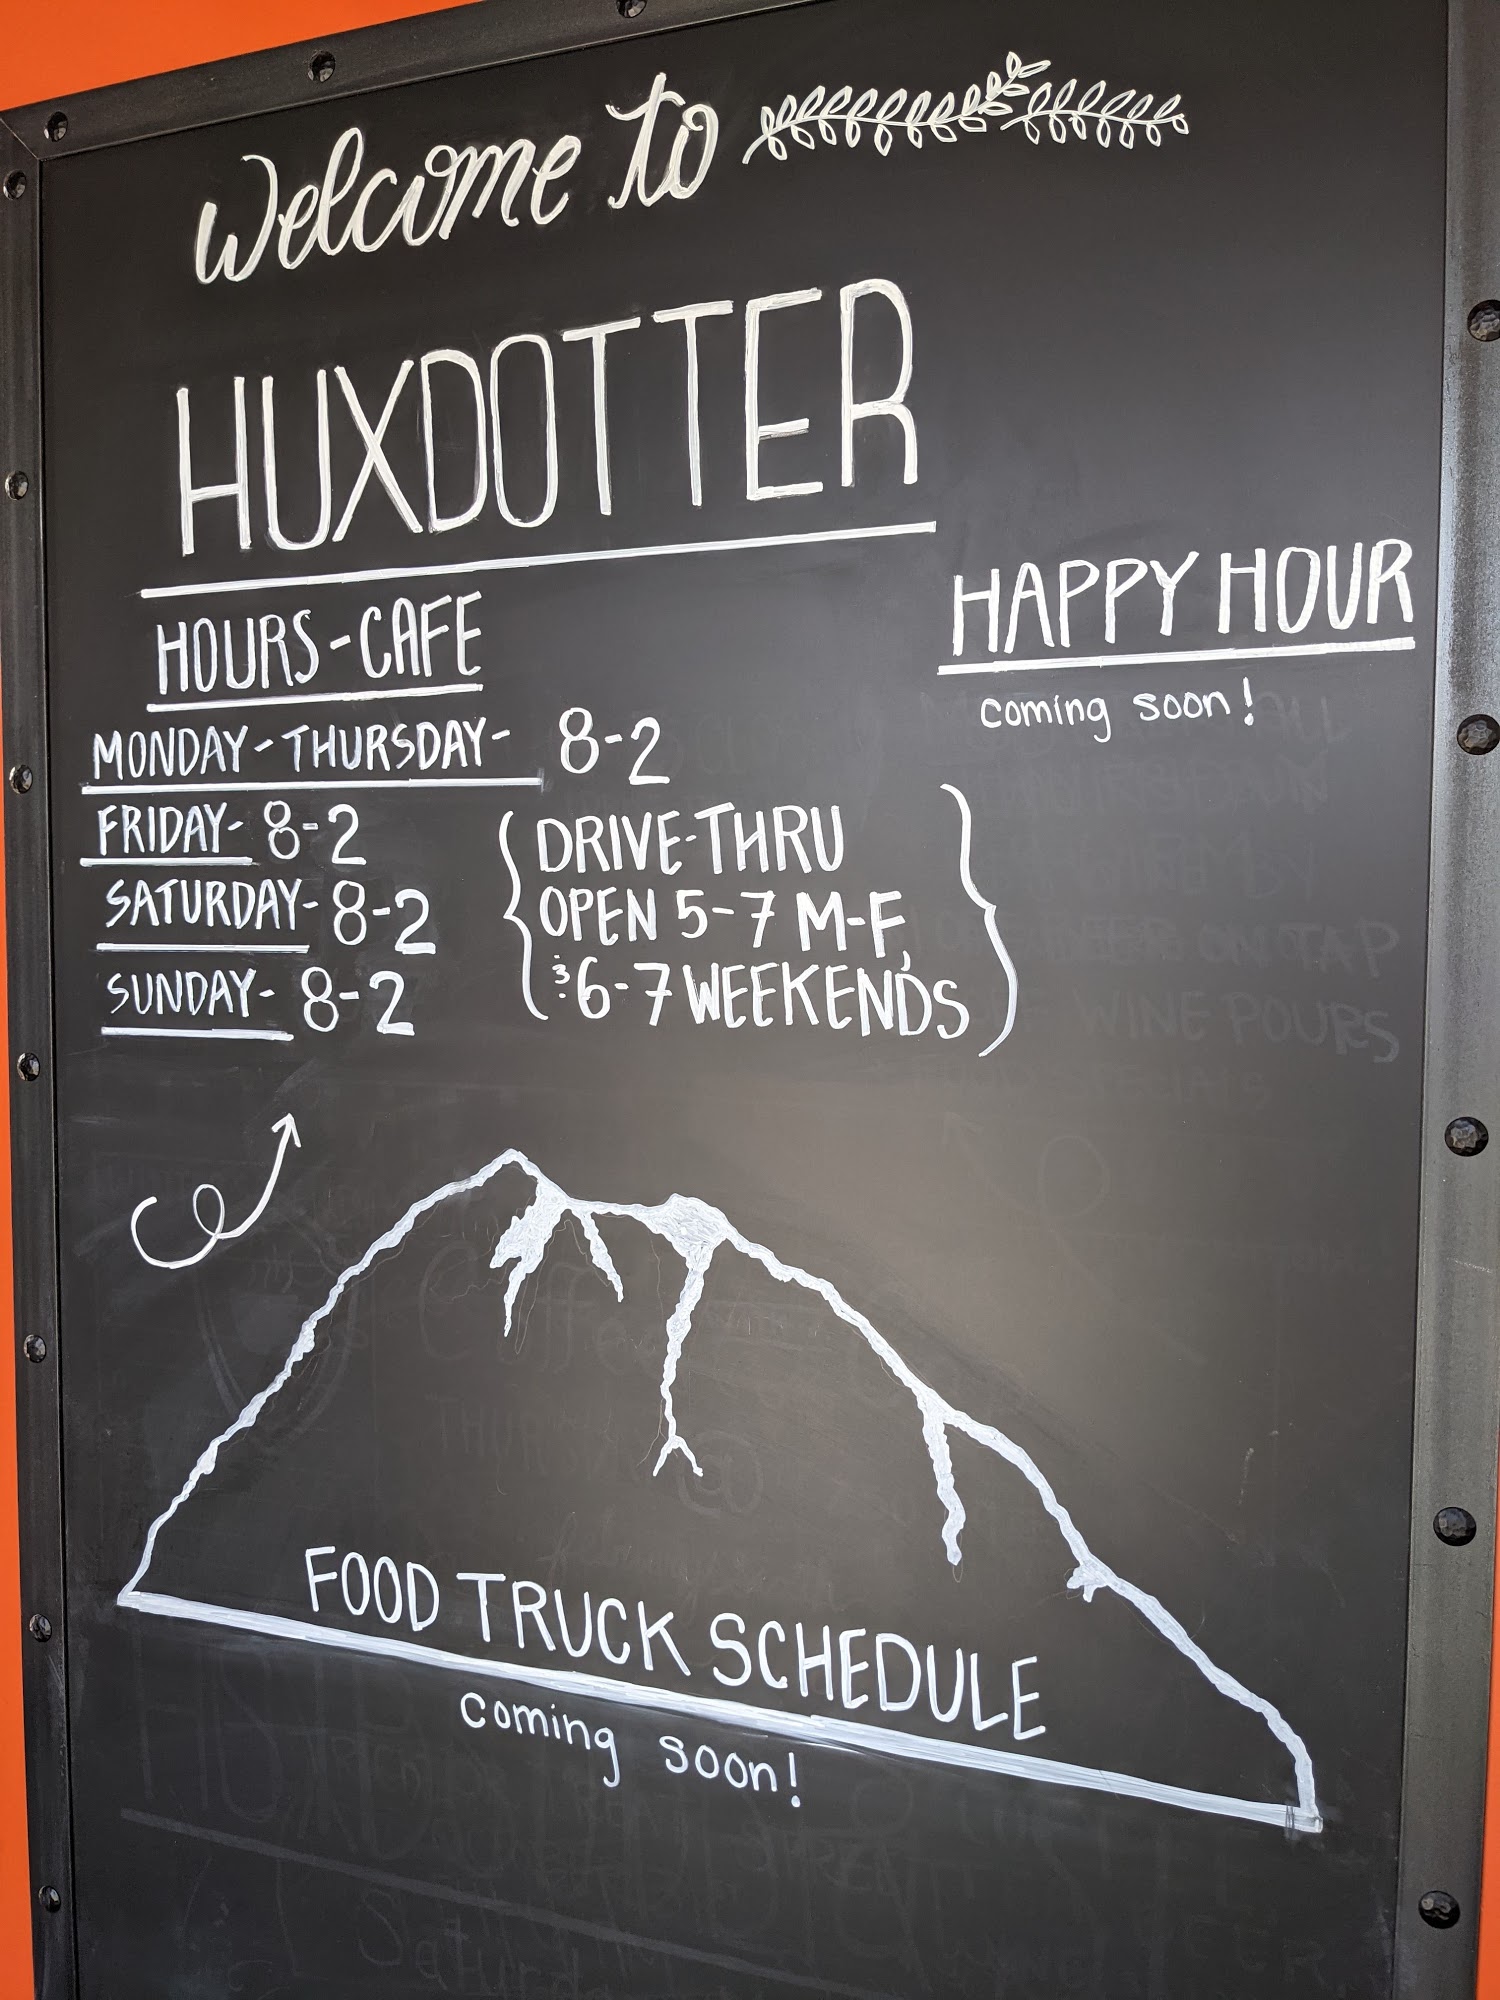 Welcome to
HUXDOTTER
HOURS-CAFE
MONDAY-THURSDAY- 8-2
FRIDAY- 8-2
SATURDAY- 8-2
SUNDAY- 8-2
DRIVE-THRU
OPEN 5-7 M-F,
& 6-7 WEEKENDS
HAPPY HOUR
coming soon!
ON TAP
WINE POURS
FOOD TRUCK SCHEDULE
coming soon!